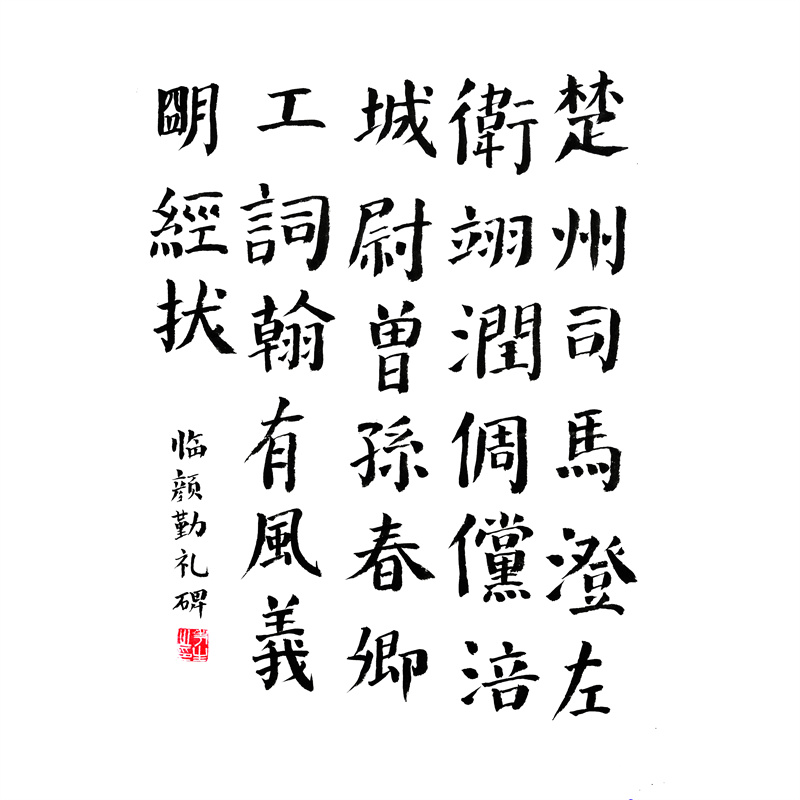 楚州司馬澄左
衛翊潤倜儻涪
城尉曾孫春卿
工詞翰有風義
朙經拔
临顔勤礼碑